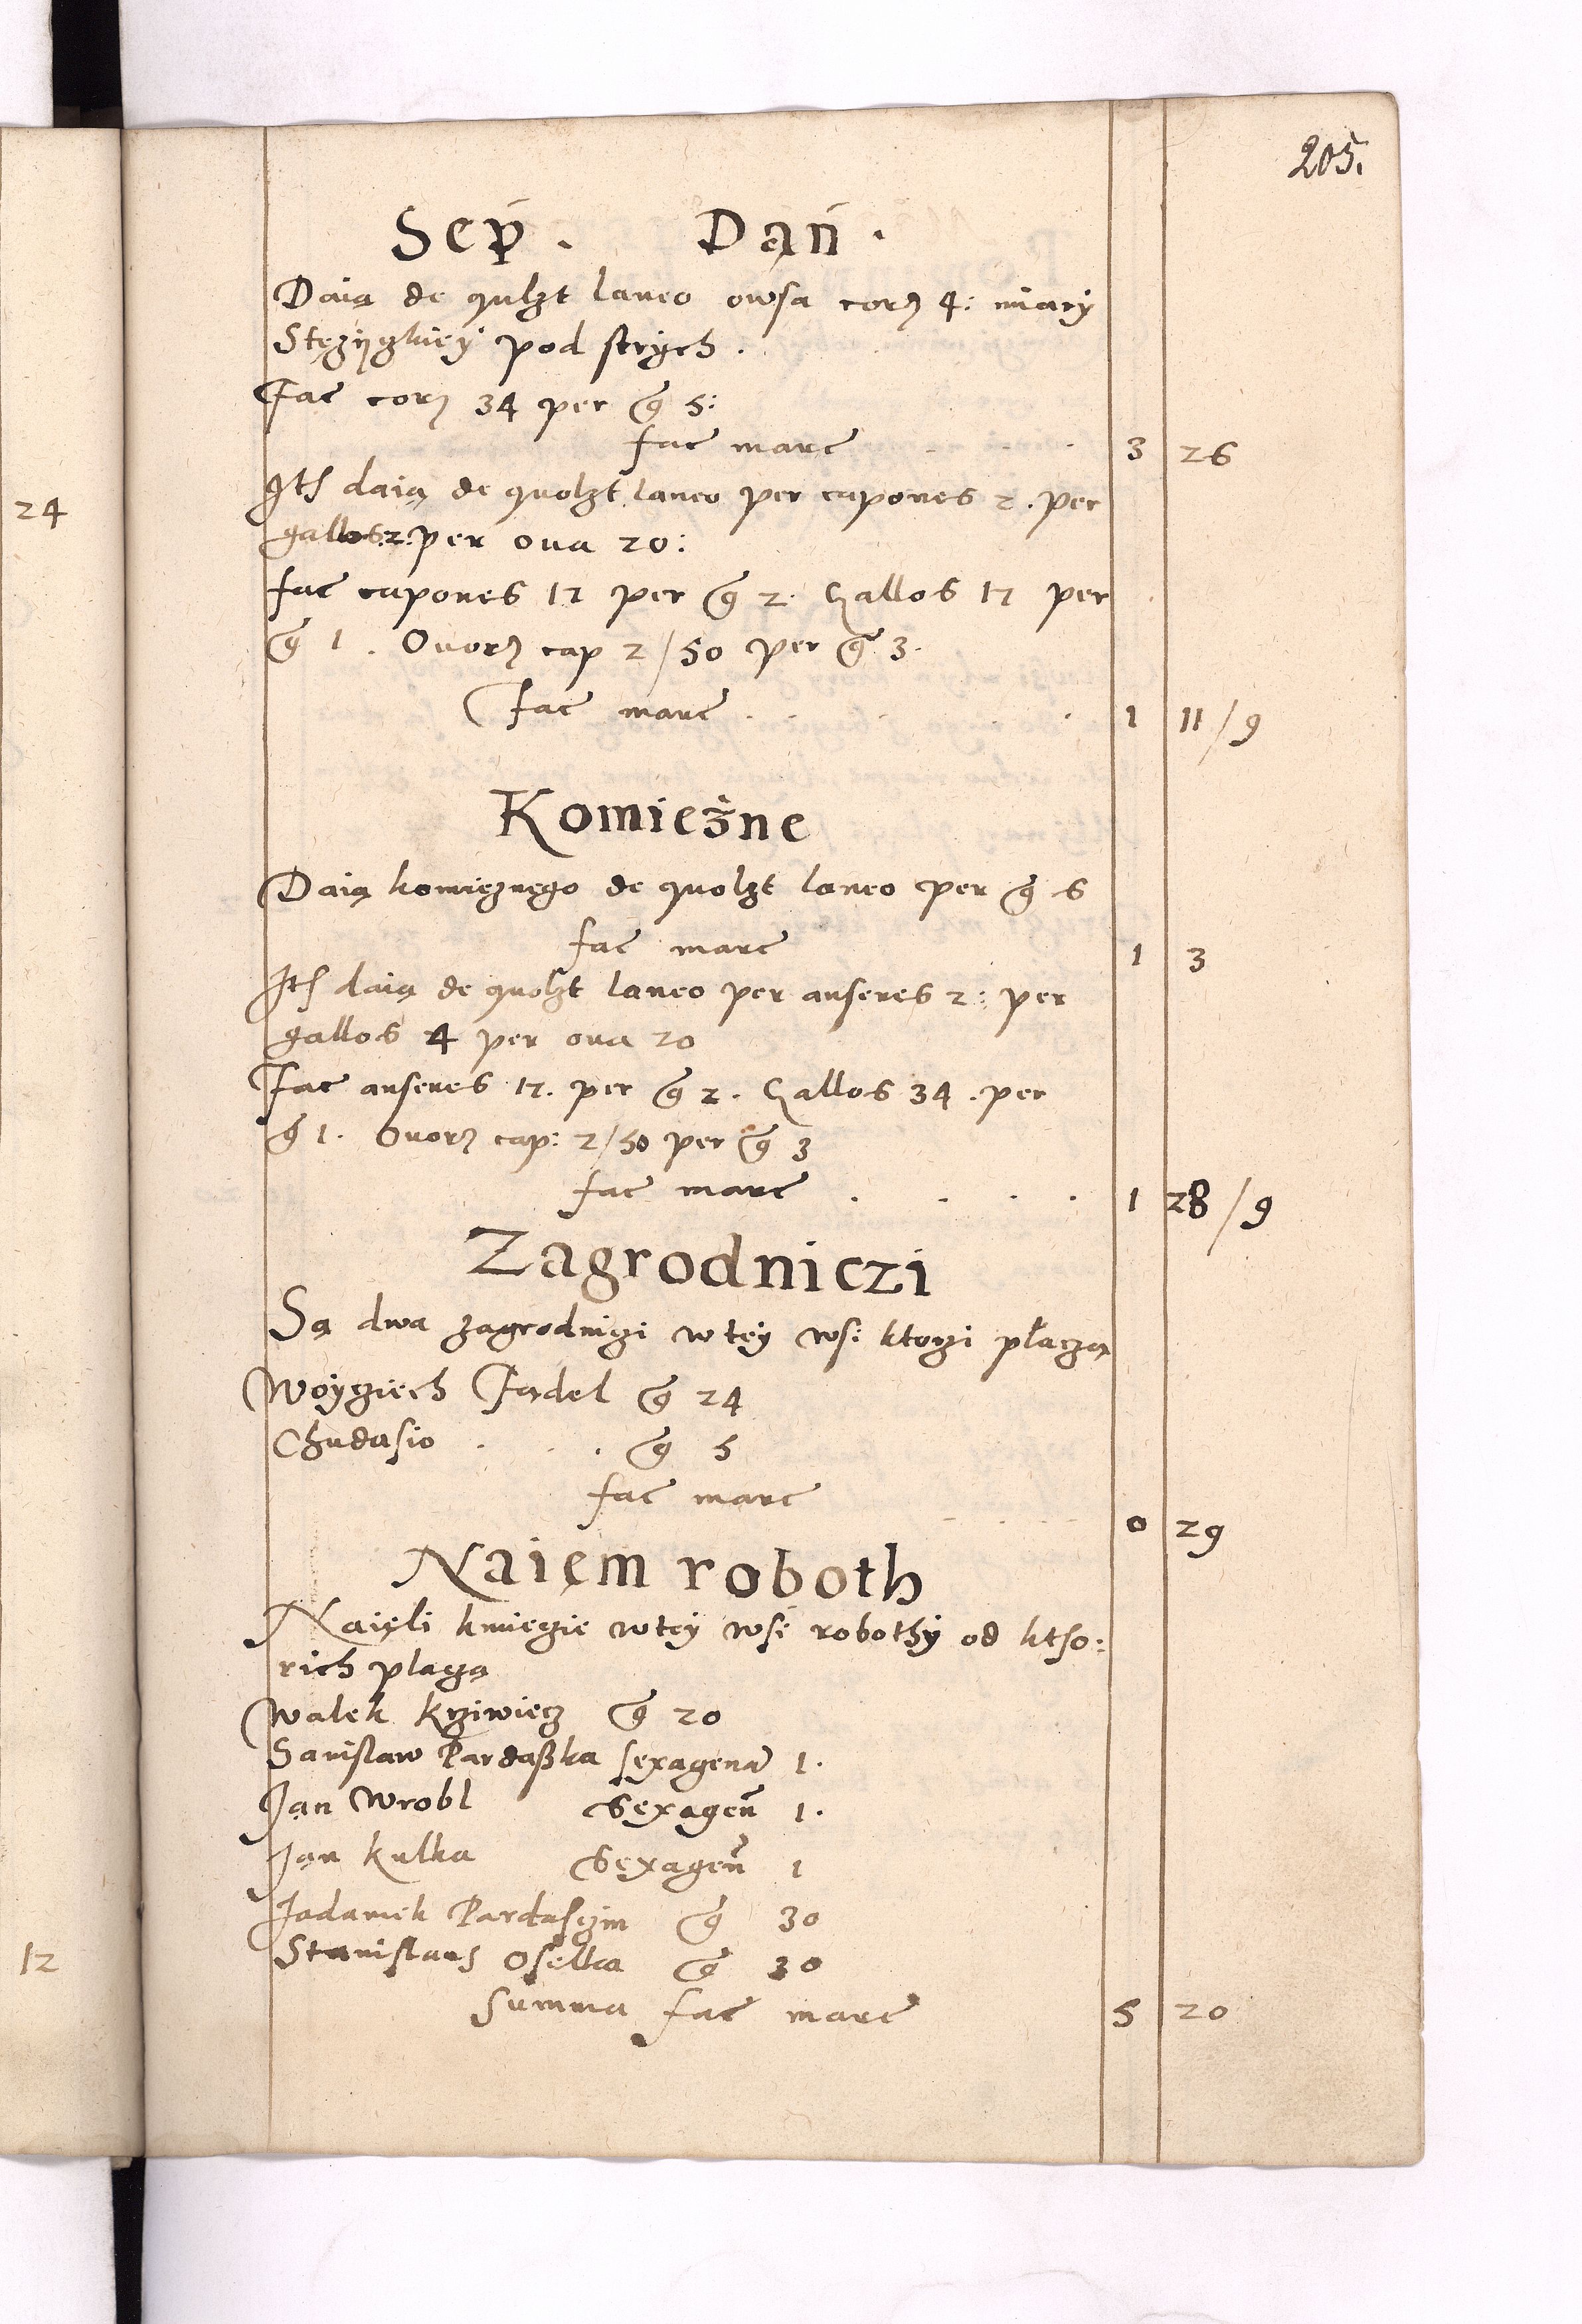 205.
Sep̃ . Dań .
Daią de qulzt laneo owsa corz 4: miary
Stęzÿczkiey pod strych .
Fac corz 34 per g 5:
fac marc . . . 3 26
Ith daią de quolzt laneo per capones 2 . per
gallos 2: per oua 20:
fac capones 17 per g 2. Gallos 17 per
g 1 . Ouorz cap 2/50 per g 3.
Fac marc . . . . . 1 11/9
Komieżne
Daią komieznego de quolzt laneo per g 6
fac marc 1 3
Ith daią de quolzt laneo per anseres 2: per
gallos 4 per oua 20
Fac anseres 17. per g 2. Gallos 34 . per
g 1. Ouorz cap: 2/50 per g 3
fac marc . . . . 1 28/9
Zagrodniczi
Są dwa zagrodniczi w tey wsi ktorzi płaczą
Woyciech Fadel g 24
Chudasio . . . g 5
fac marc . . . . 0 29
Naięm roboth
Naięli kmiecie w tey wsi robothy od ktho:
rich placzą
24
12
Walek Krziwiecz g 20
Stanislaw Pardaßka sexagena 1.
Jan Wrobl Sexageñ 1.
Jan Kulka Sexageñ 1
Jadamek Pardusczin g 30
Stanislaus Oselka g 30
Summa fac marc 5 20